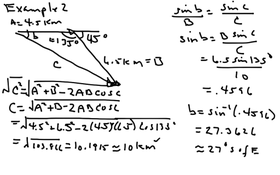 Example 2
A=4.5km
b
=135°
45°
C
6.5km=B
√C² = √A²+B²-2ABcosc
C=√A²+B²-2ABcosc
=√4.5²+6.5²-2(4.5)(6.5)cos135°
=√103.966=10.1965≈10km
sin b/B = sin c/C
sin b = B sin c/C
= 6.5 sin 135°/10
= .4596
b = sin⁻¹(.4596)
= 27.3626
≈27° S of E